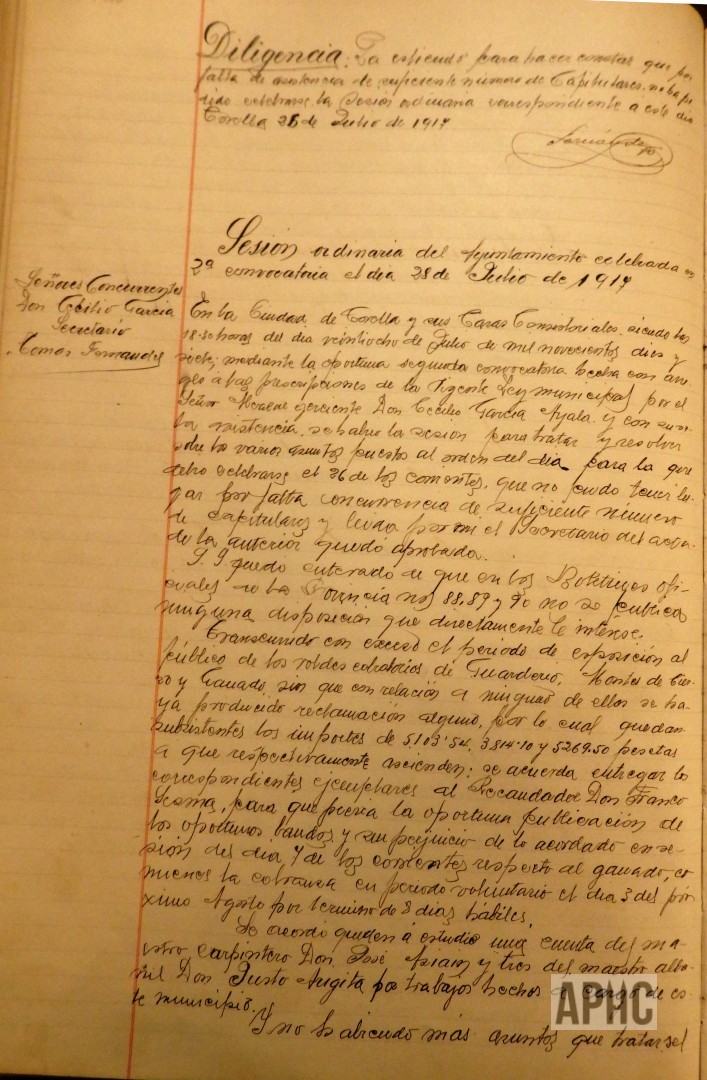 Diligencia: La estiendo para hacer constar que por
falta de asistencia de suficiente número de Capitulares, no ha po
dido celebrarse la sesión ordinaria correspondiente a este dia
Corella 26 de Julio de 1917
Sesión ordinaria del Ayuntamiento celebrada en
2ª convocatoria el dia 28 de Julio de 1917
Señores Concurrentes
Don Cecilio Garcia
Secretario
Tomas Fernandez
En la Ciudad de Corella y sus Casas Consistoriales, siendo las
18-30 horas del dia veintiocho de Julio de mil novecientos dies y
siete; mediante la oportuna segunda convocatoria hecha con arre
glo a las prescripciones de la vigente Ley municipal, por el
Señor Alcalde ejerciente Don Cecilio Garcia Ayala y con su so
la asistencia, se habrio la sesion para tratar y resolver
sobre los varios asuntos puestos al orden del dia para la que
debio celebrarse el 26 de los corrientes, que no pudo tener lu
gar por falta concurrencia de suficiente número
de capitulares y leida por mi el Secretario del acta
de la anterior quedó aprobada.
S. S quedo enterado de que en los Boletines ofi
ciales de la Provincia nos 88, 89 y 90 no se publica
ninguna disposicion que directamente le interese.
Transcurrido con exceso el periodo de exposición al
público de los roldes cobratorios de Guarderio, Montes de
y Ganado, sin que con relación a ninguno de ellos se ha
ya producido reclamación alguna, por lo cual quedan
subsistentes los importes de 5,103'54, 3,814'10 y 5269.50 pesetas
a que respectivamente ascienden; se acuerda entregar los
correspondientes ejemplares al Recaudador Don Franco
para que previa la oportuna publicación de
los oportunos bandos y sin perjuicio de lo acordado en se
sión del dia 7 de los corrientes respecto al ganado, co
mience la cobranza en periodo voluntario el dia 3 del pró
ximo Agosto por termino de 8 dias hábiles.
Se acordó queden a estudio una cuenta del ma
estro carpintero Don José y tres del maestro alba
ñil Don Justo por trabajos hechos a cargo de es
te municipio.
Y no habiendo más asuntos que tratar, el
APHC